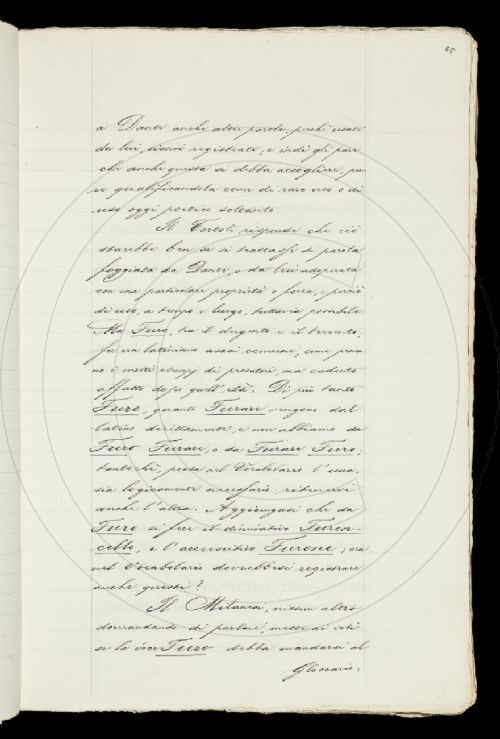 65
a Dante anche altre parole, perché usate
da lui, sieno registrate; e indi gli pare
che anche questa si debba accogliere, pu-
re qualificandola come di raro uso o di
uso oggi poetico soltanto.
Il Tortoli risponde che ciò
starebbe ben se si trattasse di parola
foggiata da Dante, o da lui adoperata
con una particolare proprietà o forza, e perciò
di uso, a tempo e luogo, tuttavia possibile.
Ma Furo, tra il dugento e il trecento,
fu un latinismo assai comune, come prova-
no i molti esempj di prosatori, ma caduto
affatto dopo quell'età. Di più tanto
Furo, quanto Furare vengono dal
latino direttamente, e non abbiamo da
Furo Furare, o da Furare Furo;
tantochè, posta nel Vocabolario l'una,
sia logicamente necessario ritrovarvi
anche l'altra. Aggiungasi che da
Furo si fece il diminutivo Furon-
cello, e l'accrescitivo Furone; ora
nel Vocabolario dovrebbesi registrare
anche questi?
Il Milanesi, niesun altro
domandando di parlare, mette ai voti
se la voce Furo debba mandarsi al
Glossario;